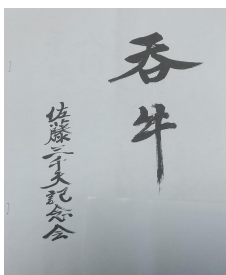 呑牛
佐藤三千夫記念会